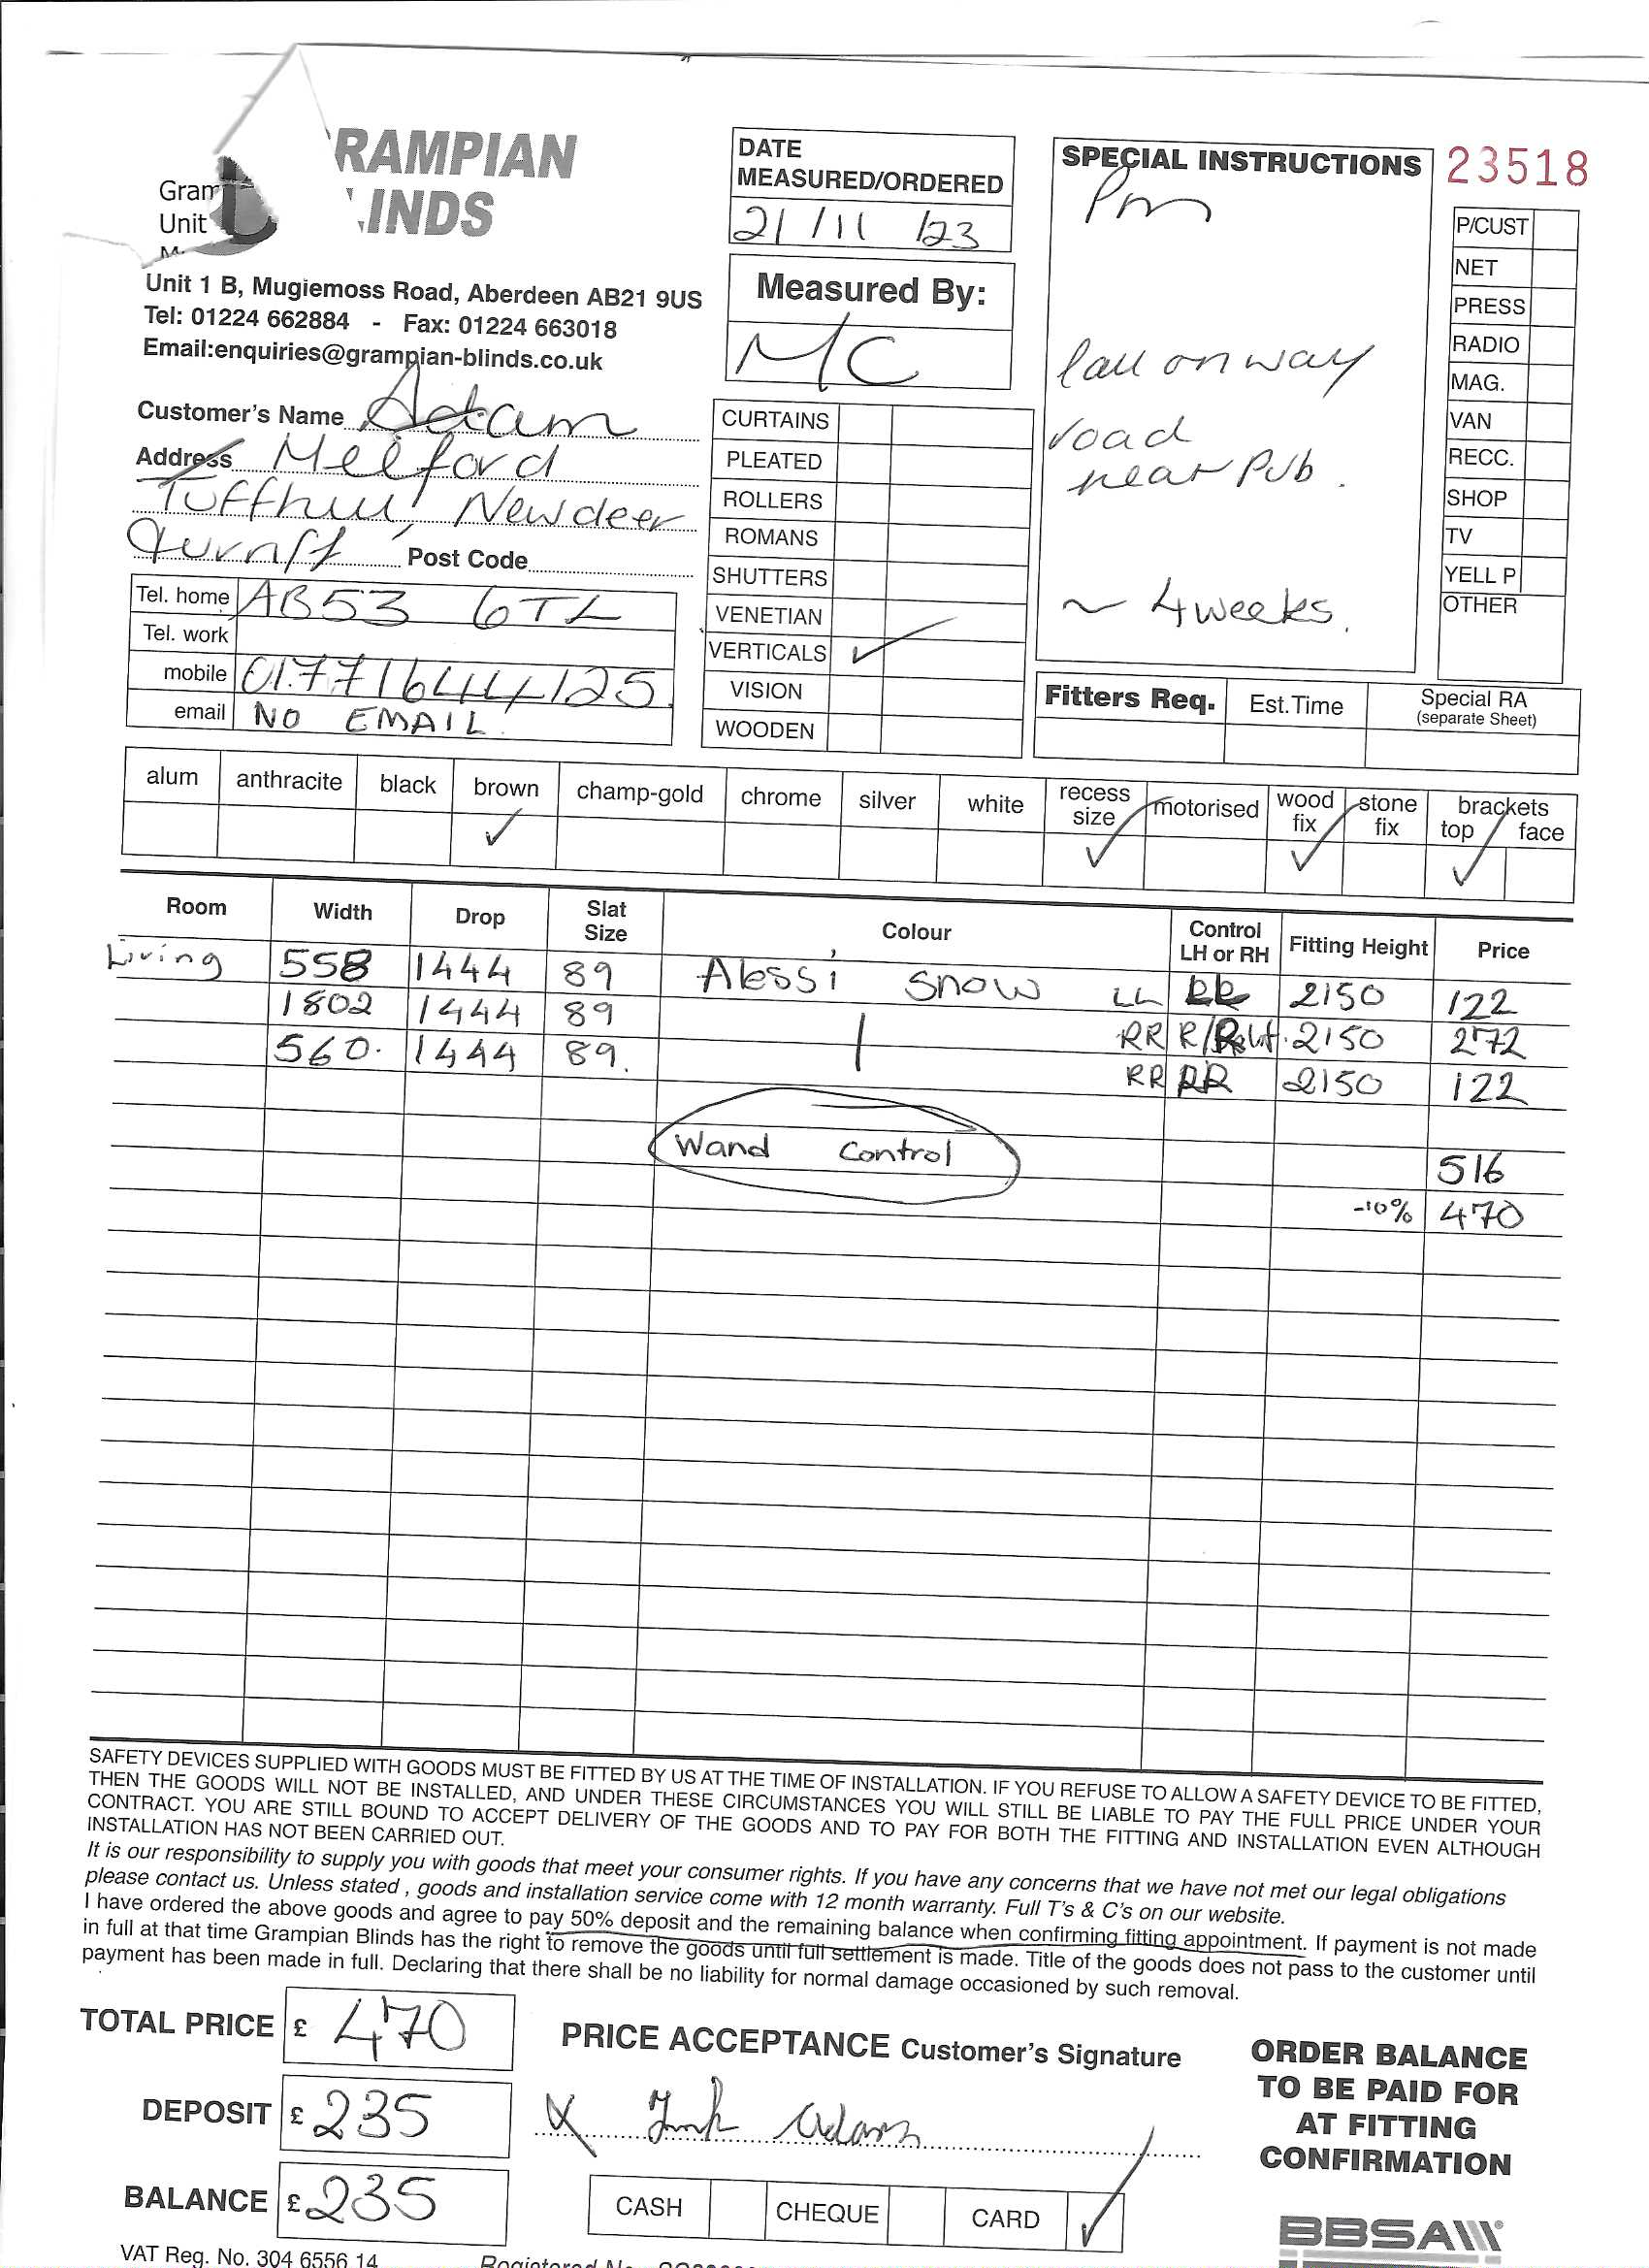 RAMPIAN
LINDS
Gram
Unit
Unit 1 B, Mugiemoss Road, Aberdeen AB21 9US
Tel: 01224 662884 - Fax: 01224 663018
Email:enquiries@grampian-blinds.co.uk
Customer's Name Adam
Address Melford
Tuffhill Newdeer
Turriff Post Code
Tel. home AB53 6TL
Tel. work
mobile 01771644125
email NO EMAIL
DATE
MEASURED/ORDERED
21/11/23
Measured By:
MC
CURTAINS
PLEATED
ROLLERS
ROMANS
SHUTTERS
VENETIAN
VERTICALS ✓
VISION
WOODEN
SPECIAL INSTRUCTIONS
Pm
Call on way
road
near Pub.
~ 4 weeks.
23518
P/CUST
NET
PRESS
RADIO
MAG.
VAN
RECC.
SHOP
TV
YELL P
OTHER
Fitters Req. Est.Time Special RA
(separate Sheet)
alum anthracite black brown champ-gold chrome silver white recess size motorised wood fix stone fix brackets top face
✓ ✓ ✓ ✓
Room Width Drop Slat Size Colour Control LH or RH Fitting Height Price
Living 558 1444 89 Alessi Snow LL 2150 122
1802 1444 89 RR 2150 272
560. 1444 89. RR RR 2150 122
Wand Control
516
-10% 470
SAFETY DEVICES SUPPLIED WITH GOODS MUST BE FITTED BY US AT THE TIME OF INSTALLATION. IF YOU REFUSE TO ALLOW A SAFETY DEVICE TO BE FITTED,
THEN THE GOODS WILL NOT BE INSTALLED, AND UNDER THESE CIRCUMSTANCES YOU WILL STILL BE LIABLE TO PAY THE FULL PRICE UNDER YOUR
CONTRACT. YOU ARE STILL BOUND TO ACCEPT DELIVERY OF THE GOODS AND TO PAY FOR BOTH THE FITTING AND INSTALLATION EVEN ALTHOUGH
INSTALLATION HAS NOT BEEN CARRIED OUT.
It is our responsibility to supply you with goods that meet your consumer rights. If you have any concerns that we have not met our legal obligations
please contact us. Unless stated , goods and installation service come with 12 month warranty. Full T's & C's on our website.
I have ordered the above goods and agree to pay 50% deposit and the remaining balance when confirming fitting appointment. If payment is not made
in full at that time Grampian Blinds has the right to remove the goods until full settlement is made. Title of the goods does not pass to the customer until
payment has been made in full. Declaring that there shall be no liability for normal damage occasioned by such removal.
TOTAL PRICE £ 470
DEPOSIT £ 235
BALANCE £ 235
PRICE ACCEPTANCE Customer's Signature
X Adam
CASH CHEQUE CARD ✓
ORDER BALANCE
TO BE PAID FOR
AT FITTING
CONFIRMATION
BBSA
VAT Reg. No. 304 6556 14